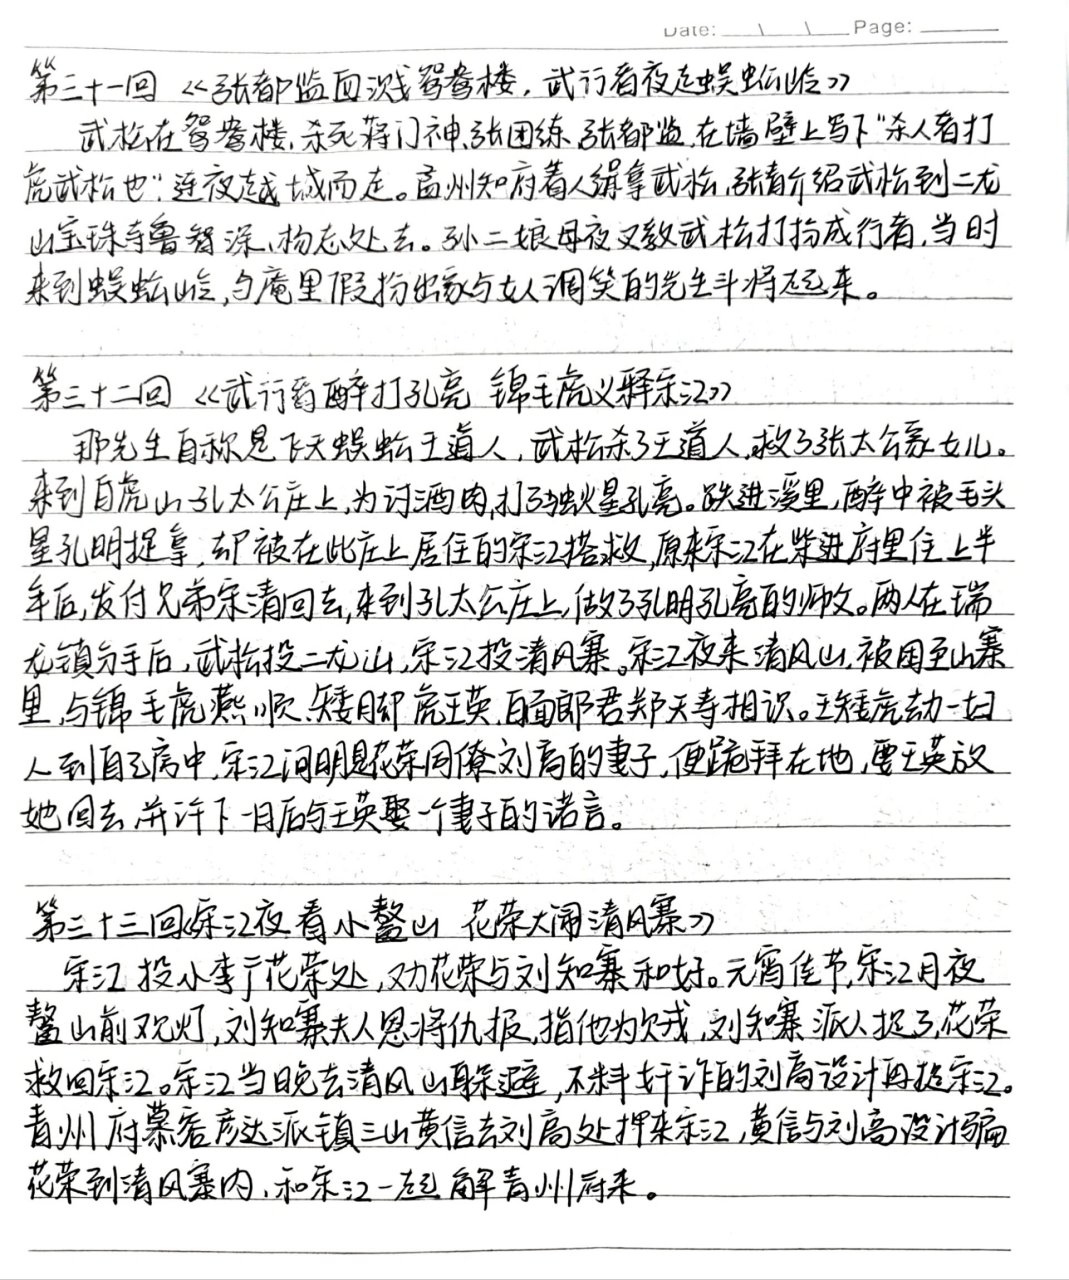 Date: __\__\__ Page: ____
第三十一回 《张都监血溅鸳鸯楼，武行者夜走蜈蚣岭》
武松在鸳鸯楼，杀死蒋门神、张团练、张都监，在墙壁上写下“杀人者打
虎武松也”，连夜越城而走。孟州知府着人缉拿武松，张青介绍武松到二龙
山宝珠寺鲁智深、杨志处去。孙二娘母夜叉教武松打扮成行者，当时
来到蜈蚣岭，与庵里假扮出家与女人调笑的先生斗将起来。
第三十二回 《武行者醉打孔亮 锦毛虎义释宋江》
那先生自称是飞天蜈蚣王道人，武松杀了王道人，救了张太公家女儿。
来到白虎山孔太公庄上，为讨酒肉，打了独火星孔亮。跌进溪里，醉中被毛头
星孔明捉拿，却被在此庄上居住的宋江搭救，原来宋江在柴进府里住上半
年后，发付兄弟宋清回去，来到孔太公庄上，做了孔明孔亮的师父。两人在瑞
龙镇分手后，武松投二龙山，宋江投清风寨。宋江夜来清风山，被困至山寨
里，与锦毛虎燕顺、矮脚虎王英、白面郎君郑天寿相识。王矮虎劫一妇
人到自己房中，宋江问明是花荣同僚刘高的妻子，便跪拜在地，要王英放
她回去，并许下一日后与王英娶一个妻子的诺言。
第三十三回《宋江夜看小鳌山 花荣大闹清风寨》
宋江投小李广花荣处，劝花荣与刘知寨和好。元宵佳节，宋江月夜
鳌山前观灯，刘知寨夫人恩将仇报，指他为贼，刘知寨派人捉了，花荣
救回宋江。宋江当晚去清风山躲避，不料奸诈的刘高设计再捉宋江。
青州府慕容彦达派镇三山黄信去刘高处押来宋江，黄信与刘高设计骗
花荣到清风寨内，和宋江一起解青州府来。